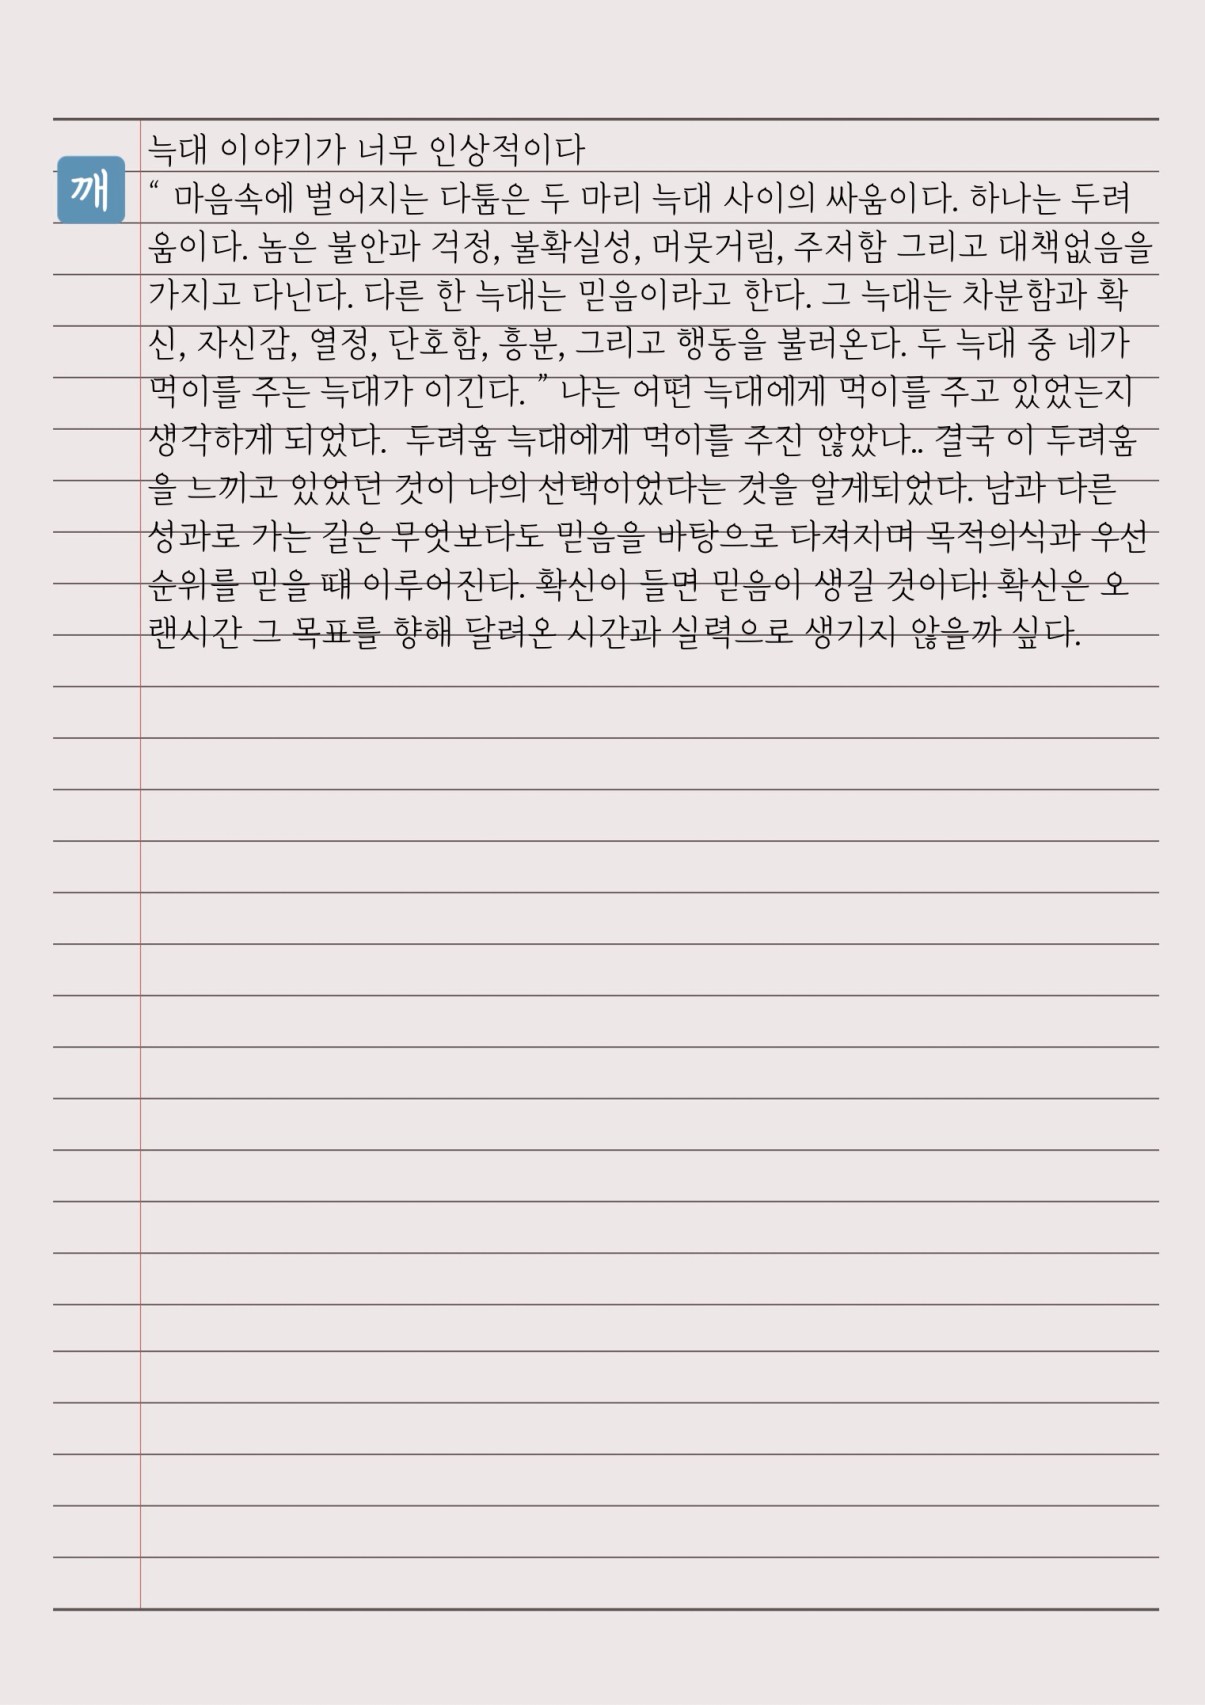 늑대 이야기가 너무 인상적이다
깨
“ 마음속에 벌어지는 다툼은 두 마리 늑대 사이의 싸움이다. 하나는 두려
움이다. 놈은 불안과 걱정, 불확실성, 머뭇거림, 주저함 그리고 대책없음을
가지고 다닌다. 다른 한 늑대는 믿음이라고 한다. 그 늑대는 차분함과 확
신, 자신감, 열정, 단호함, 흥분, 그리고 행동을 불러온다. 두 늑대 중 네가
먹이를 주는 늑대가 이긴다. ” 나는 어떤 늑대에게 먹이를 주고 있었는지
생각하게 되었다.  두려움 늑대에게 먹이를 주진 않았나.. 결국 이 두려움
을 느끼고 있었던 것이 나의 선택이었다는 것을 알게되었다. 남과 다른
성과로 가는 길은 무엇보다도 믿음을 바탕으로 다져지며 목적의식과 우선
순위를 믿을 떄 이루어진다. 확신이 들면 믿음이 생길 것이다! 확신은 오
랜시간 그 목표를 향해 달려온 시간과 실력으로 생기지 않을까 싶다.